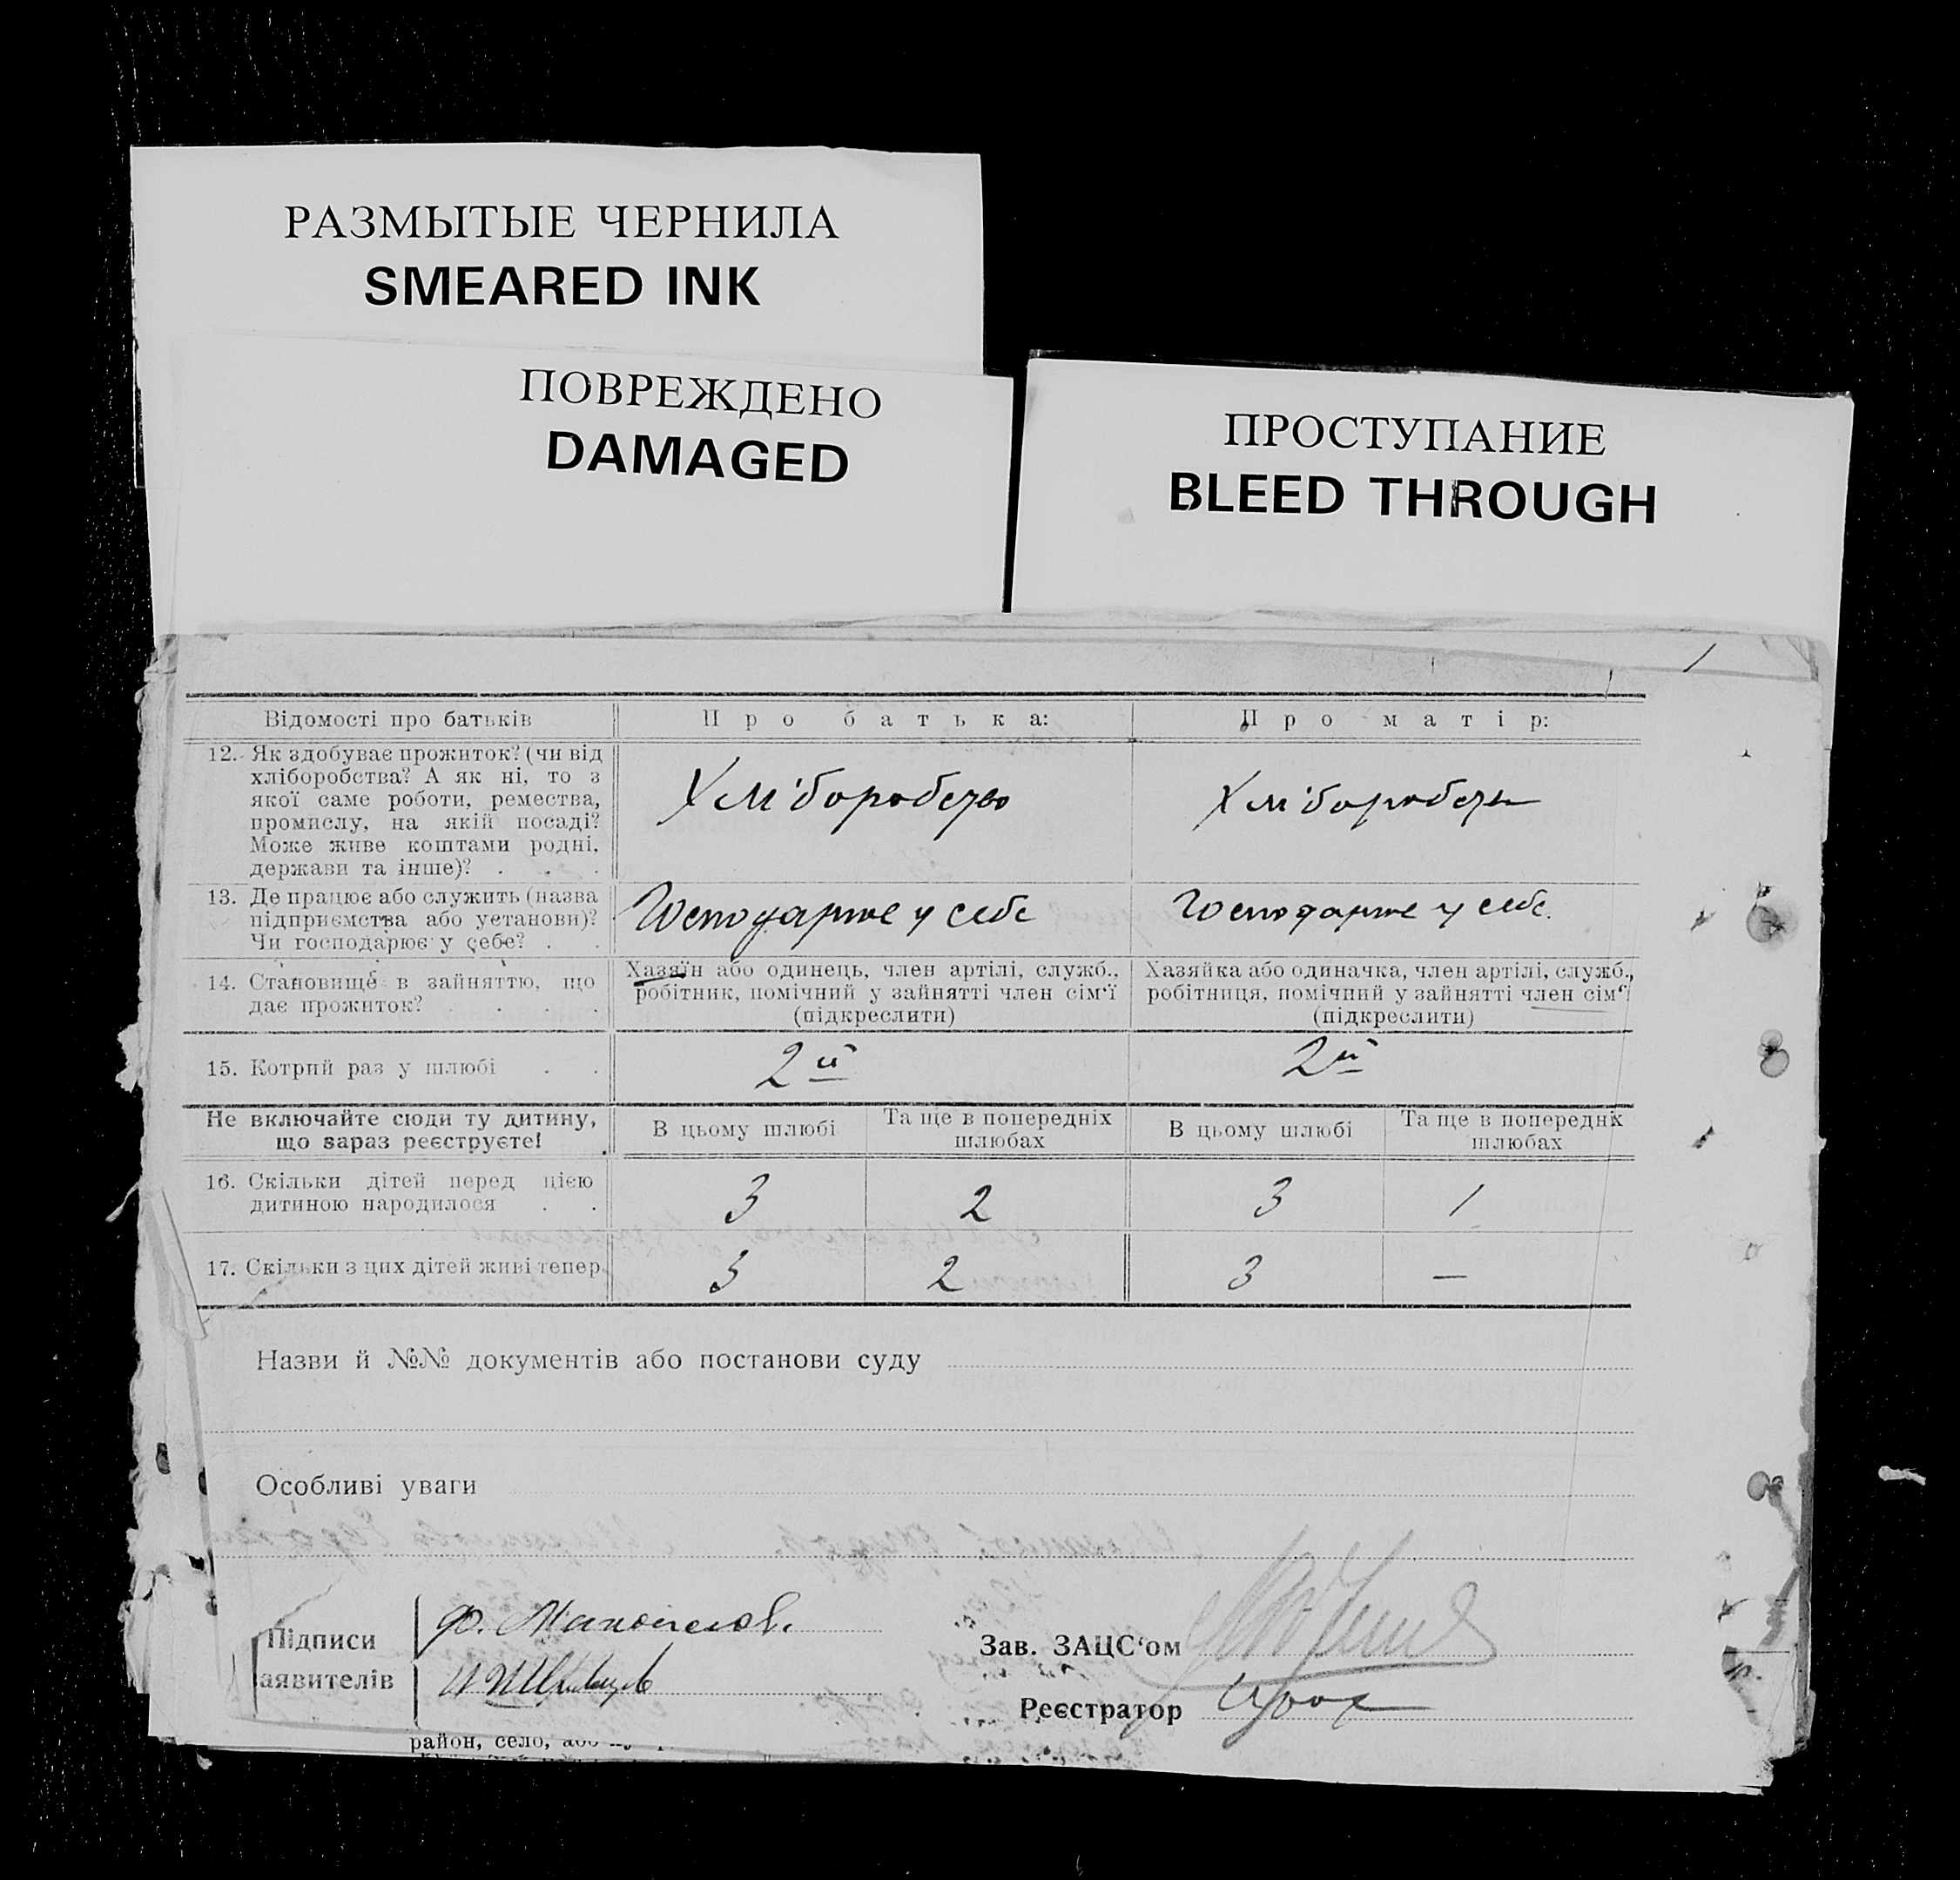 РАЗМЫТЫЕ ЧЕРНИЛА
SMEARED INK
ПОВРЕЖДЕНО
DAMAGED
ПРОСТУПАНИЕ
BLEED THROUGH
Відомості про батьків
Про батька:
Про матір:
12. Як здобуває прожиток? (чи від
хліборобства? А як ні, то з
якої саме роботи, ремества,
промислу, на якій посаді?
Може живе коштами родні,
держави та інше)?
Хліборобство
Хліборобство
13. Де працює або служить (назва
підприємства або установи)?
Чи господарює у себе?
Господарює у себе
Господарює у себе.
14. Становище в зайняттю, що
дає прожиток?
Хазяїн або одинець, член артілі, служб.,
робітник, помічний у зайнятті член сім'ї
(підкреслити)
Хазяйка або одиначка, член артілі, служб.,
робітниця, помічний у зайнятті член сім'ї
(підкреслити)
15. Котрий раз у шлюбі
2й
2й
Не включайте сюди ту дитину,
що зараз реєструєте!
В цьому шлюбі
Та ще в попередніх
шлюбах
В цьому шлюбі
Та ще в попередніх
шлюбах
16. Скільки дітей перед цією
дитиною народилося
3
2
3
1
17. Скільки з цих дітей живі тепер
3
2
3
—
Назви й №№ документів або постанови суду
Особливі уваги
Підписи
аявителів
Ф.
Зав. ЗАЦС'ом
Реєстратор
район, село, або